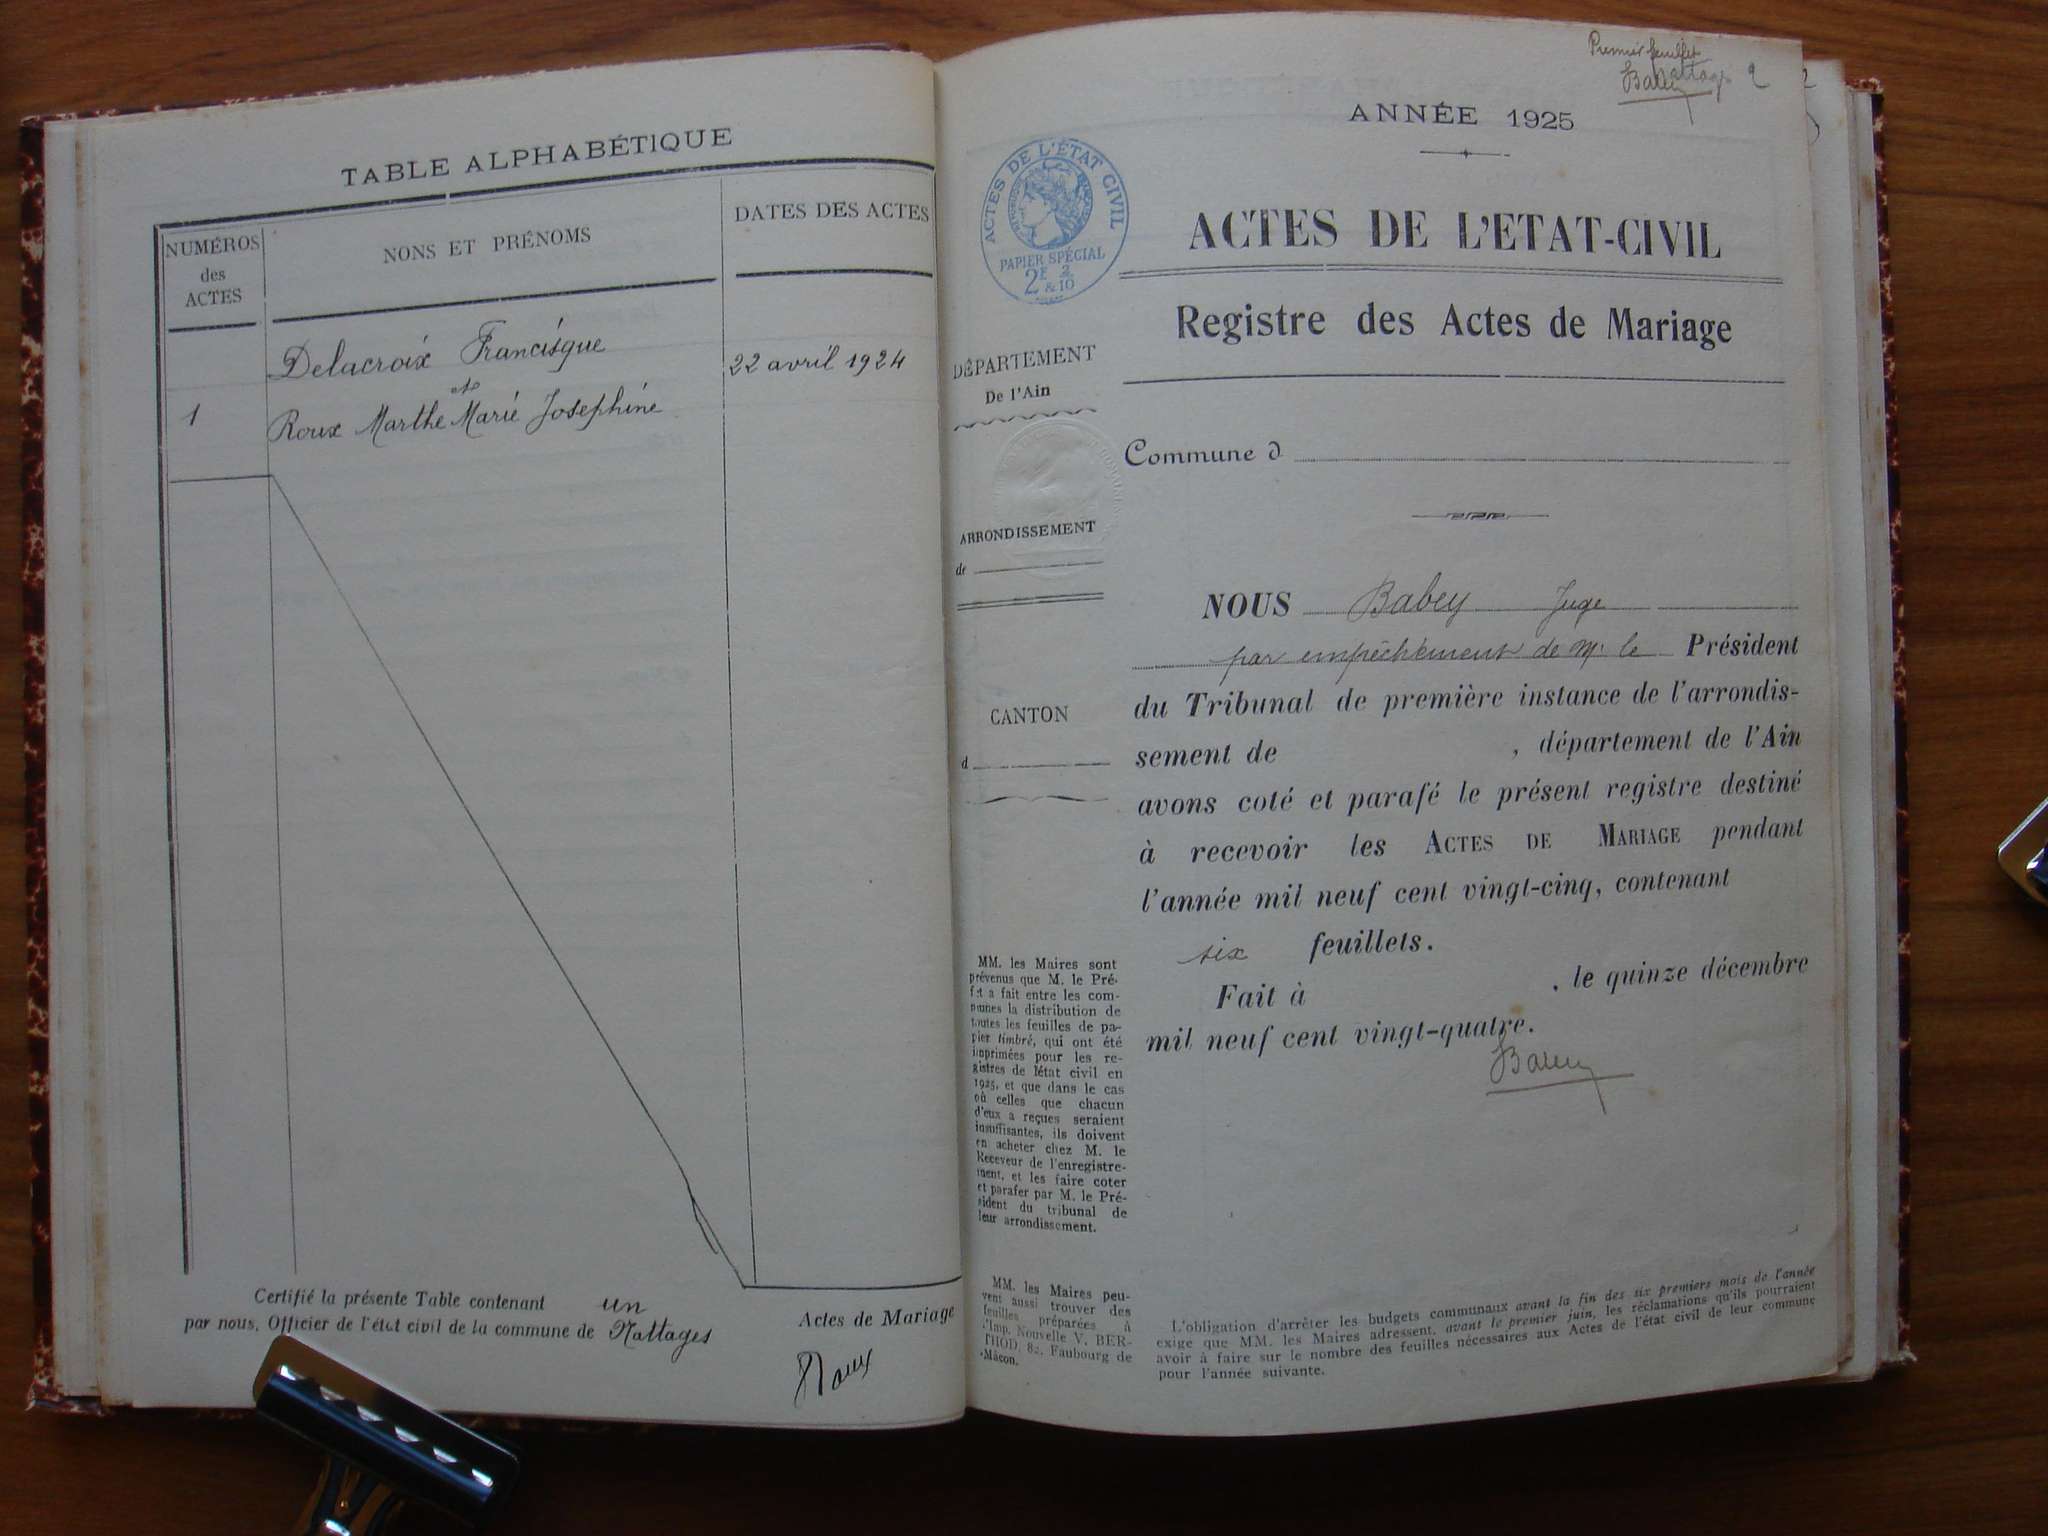 TABLE ALPHABÉTIQUE
NUMÉROS
des
ACTES
NONS ET PRÉNOMS
DATES DES ACTES
Delacroix Francisque
22 avril 1924
et
1
Roux Marthe Marie Josephine
Certifié la présente Table contenant un
Actes de Mariage
par nous, Officier de l'état civil de la commune de Nattages
Roux
Premier feuillet
Nattages
Babey
2
ANNÉE 1925
ACTES DE L'ÉTAT CIVIL
PAPIER SPÉCIAL
2F & 2/10
ACTES DE L'ETAT-CIVIL
Registre des Actes de Mariage
DÉPARTEMENT
De l'Ain
Commune d
ARRONDISSEMENT
de
CANTON
d
NOUS Babey Juge
par empêchement de M. le Président
du Tribunal de première instance de l'arrondis-
sement de , département de l'Ain
avons coté et parafé le présent registre destiné
à recevoir les ACTES DE MARIAGE pendant
l'année mil neuf cent vingt-cinq, contenant
six feuillets.
Fait à , le quinze décembre
mil neuf cent vingt-quatre.
Babey
MM. les Maires sont
prévenus que M. le Pré-
fet a fait entre les com-
munes la distribution de
toutes les feuilles de pa-
pier timbré, qui ont été
imprimées pour les re-
gistres de l'état civil en
1925, et que dans le cas
où celles que chacun
d'eux a reçues seraient
insuffisantes, ils doivent
en acheter chez M. le
Receveur de l'enregistre-
ment, et les faire coter
et parafer par M. le Pré-
sident du tribunal de
leur arrondissement.
MM. les Maires peu-
vent aussi trouver des
feuilles préparées à
l'Imp. Nouvelle V. BER-
THOD, 82, Faubourg de
Mâcon.
L'obligation d'arrêter les budgets communaux avant la fin des six premiers mois de l'année
exige que MM. les Maires adressent, avant le premier juin, les réclamations qu'ils pourraient
avoir à faire sur le nombre des feuilles nécessaires aux Actes de l'état civil de leur commune
pour l'année suivante.